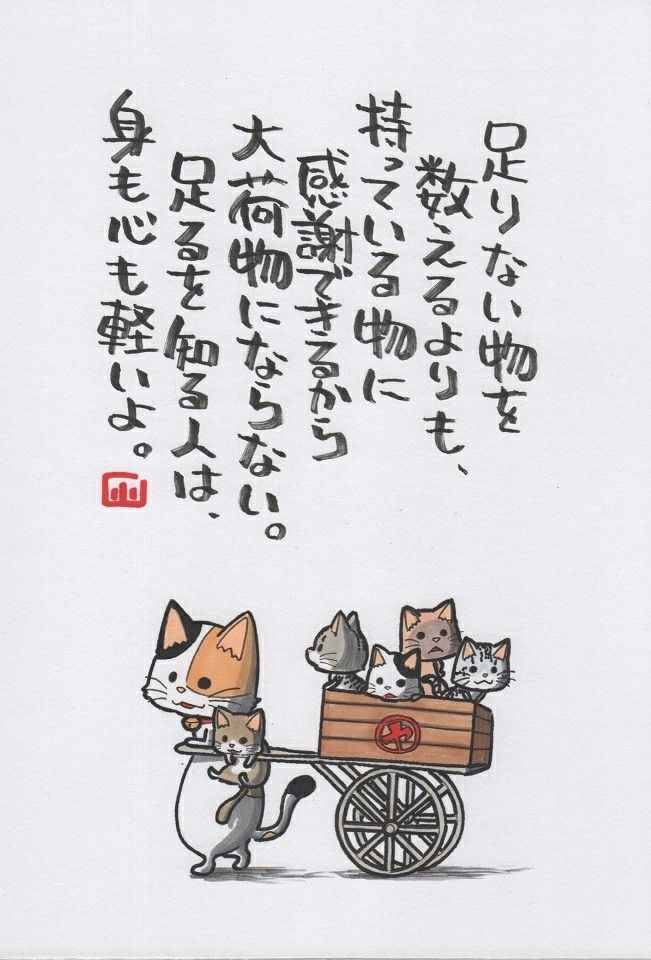 足りない物を
数えるよりも、
持っている物に
感謝できるから
大荷物にならない。
足るを知る人は、
身も心も軽いよ。
や